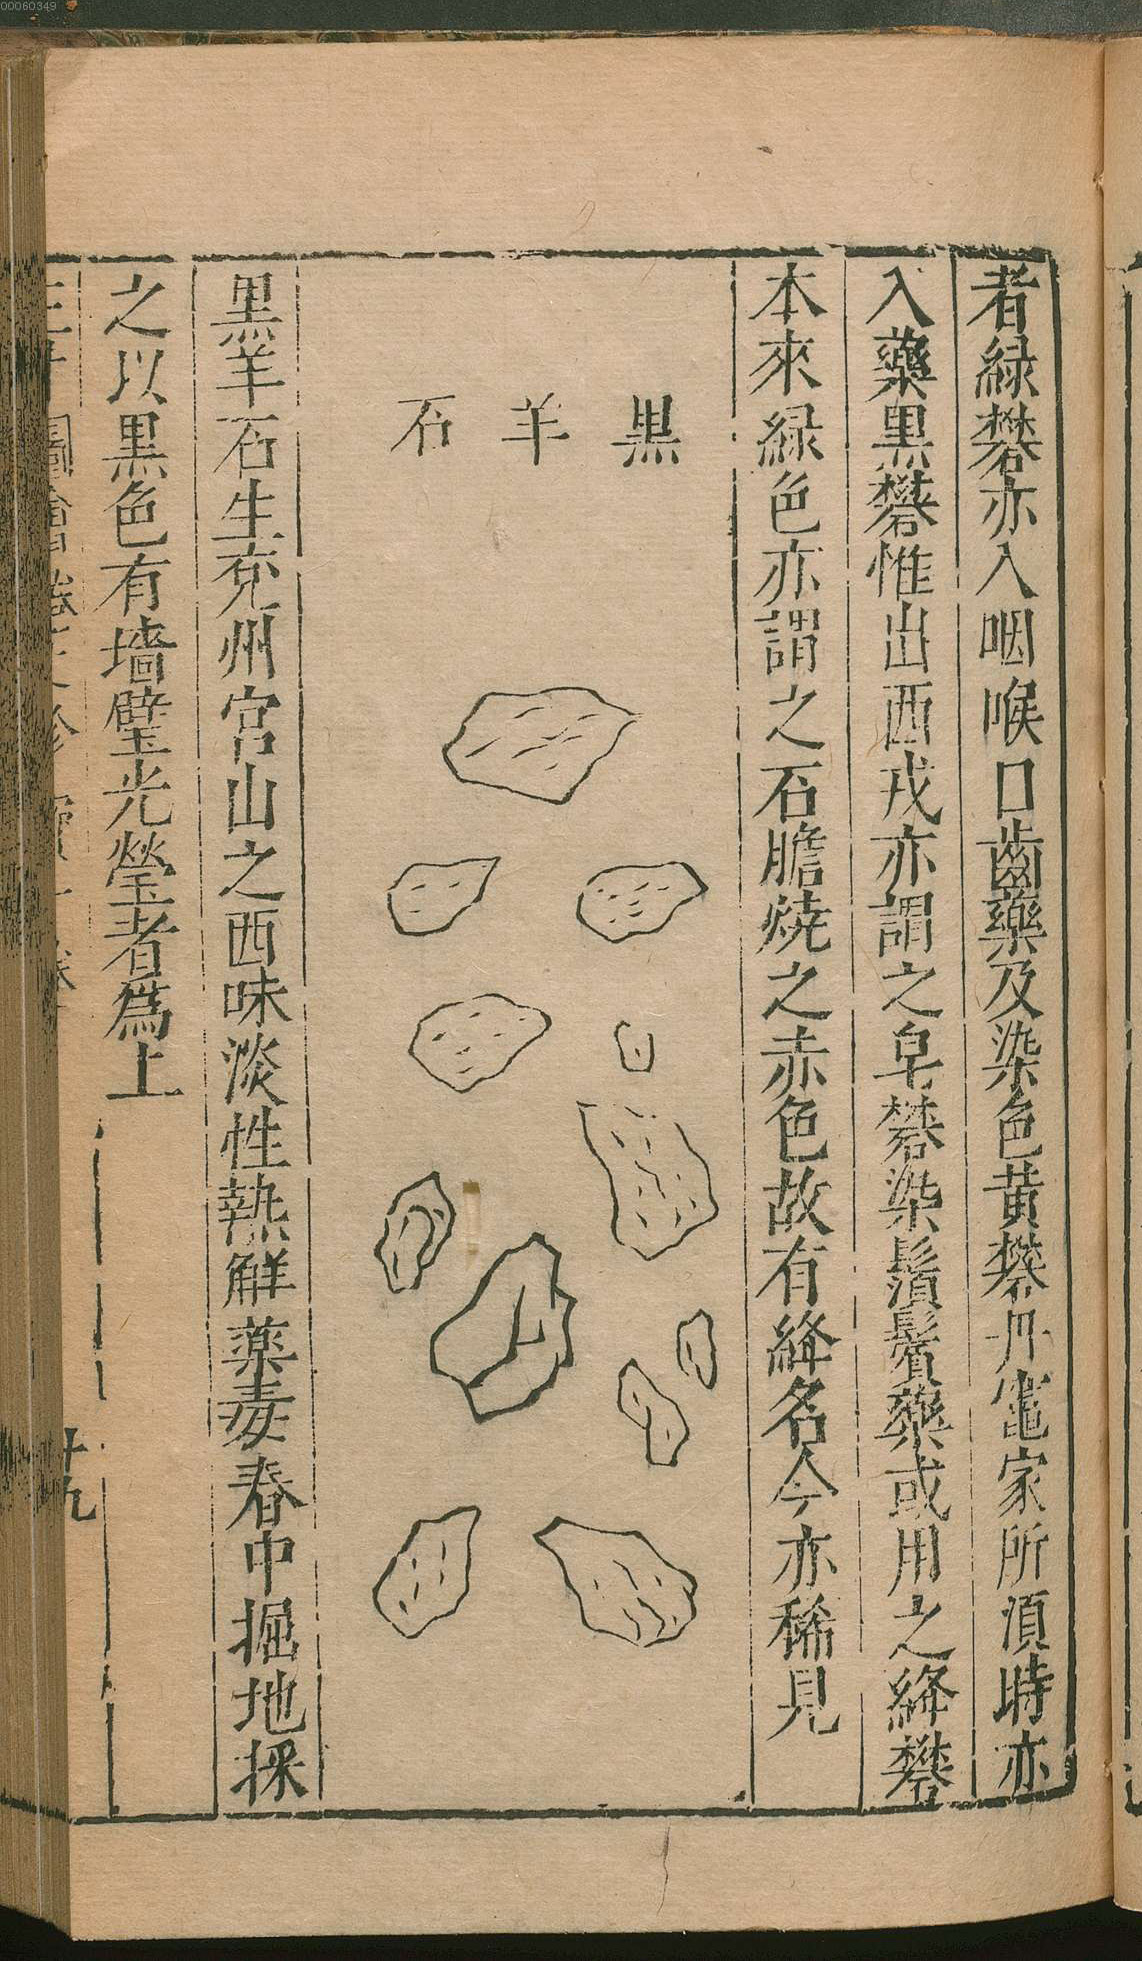 00060349
者緑礬亦入咽喉口齒藥及染色黄礬丹竈家所湏時亦
入藥黒礬惟出西戎亦謂之皁礬染鬚鬢藥或用之絳礬
本來緑色亦謂之石膽燒之赤色故有絳名今亦稀見
黒羊石
黒羊石生兖州宮山之西味淡性熱解藥毒春中掘地採
之以黒色有墻壁光瑩者為上
圖會
十九